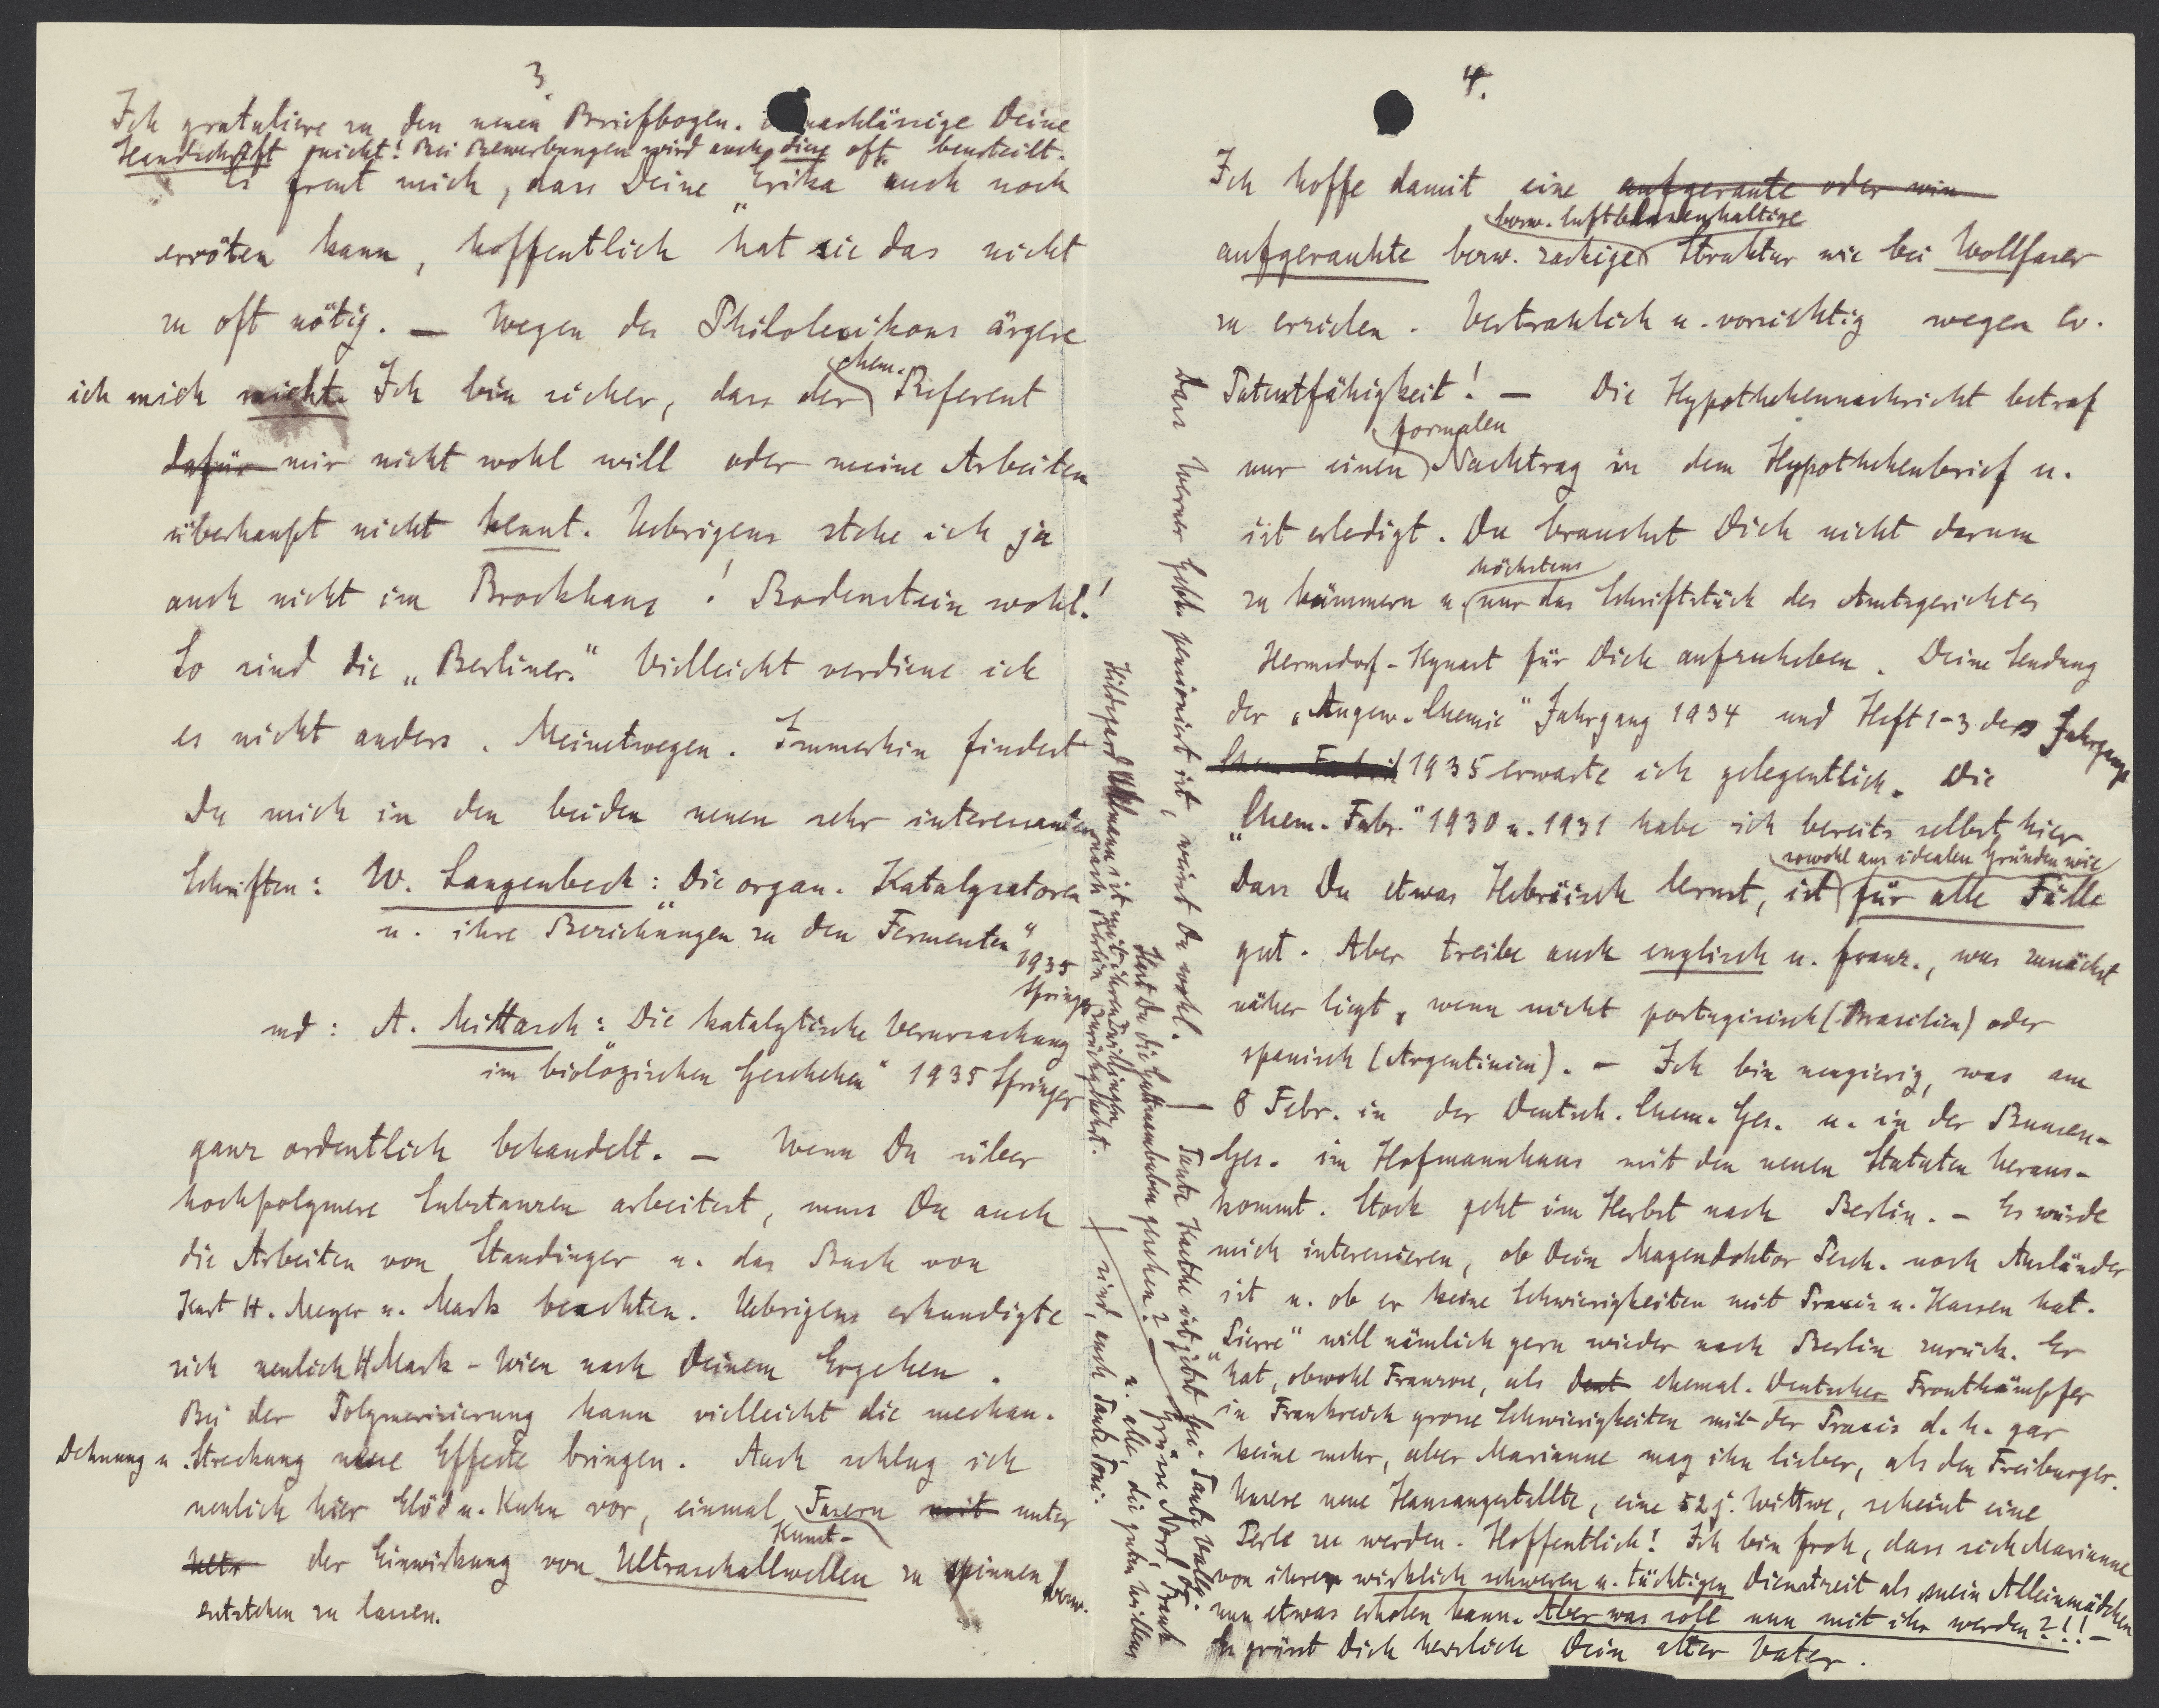 3.
Ich gratuliere zu den neuen Briefbogen. nachlässige Deine
Handschrift nicht! Bei Bewerbungen wird auch diese oft beurteilt.
Es freut mich, dass Deine "Erika" auch noch
erröten kann, hoffentlich hat sie das nicht
zu oft nötig. — Wegen des Philolexikons ärgere
ich mich nicht. Ich bin sicher, dass der chem. Referent
dafür mir nicht wohl will oder meine Arbeiten
überhaupt nicht kennt. Uebrigens stehe ich ja
auch nicht im Brockhaus! Bodenstein wohl!
So sind die „Berliner." Vielleicht verdiene ich
es nicht anders. Meinetwegen. Immerhin findest
Du mich in den beiden neuen sehr interessanten
Schriften: W. Langenbeck: Die organ. Katalysatoren
u. ihre Beziehungen zu den Fermenten"
1935
Springer
und: A. Mittasch: Die katalytische Verursachung
im biologischen Geschehen" 1935 Springer
ganz ordentlich behandelt. — Wenn Du über
hochpolymere Substanzen arbeitest, muss Du auch
die Arbeiten von Staudinger u. das Buch von
Kurt H. Meyer u. Mark beachten. Uebrigens erkundigte
sich neulich H Mark - Wien nach Deinem Ergehen.
Bei der Polymerisierung kann vielleicht die mechan.
Dehnung u. Streckung neue Effecte bringen. Auch schlug ich
neulich hier Glöd u. Kuhn vor, einmal Fasern mit unter
Kunst-
Ultr der Einwirkung von Ultraschallwellen zu spinnen bezw.
entstehen zu lassen.
Hildegard Uhlmann ist mit ihren Zwillingen
nach Berlin zurückgekehrt.
Hast Du die Guttmannbuben gesehen? — Grüsse Nord, Frank
u. alle, die guten Willens
sind, auch Tante Toni.
Dass Werner Gebh. pensioniert ist, weisst Du wohl.
Tante Kaethe ist jetzt bei Tante Vally.
4.
Ich hoffe damit eine aufgeraute oder win
bezw. luftblasenhaltige
aufgerauhte bezw. zackige Struktur wie bei Wollfaser
zu erzielen. Vertraulich u. vorsichtig wegen ev.
Patentfähigkeit! — Die Hypothekennachricht betraf
nur einen formalen Nachtrag in dem Hypothekenbrief u.
ist erledigt. Du brauchst Dich nicht darum
zu kümmern u. höchstens nur das Schriftstück des Amtsgerichtes
Hermsdorf-Kynast für Dich aufzuheben. Deine Sendung
der „Angew. Chemie" Jahrgang 1934 und Heft 1-3 des Jahrgangs
Chem. Fabrik 1935 erwarte ich gelegentlich. Die
„Chem. Fabr." 1930 u. 1931 habe ich bereits selbst hier
sowohl aus idealen Gründen wie
Dass Du etwas Hebräisch lernst, ist für alle Fälle
gut. Aber treibe auch englisch u. franz., was zunächst
näher liegt, wenn nicht portugisisch (Brasilien) oder
spanisch (Argentinien). — Ich bin neugierig, was am
8 Febr. in der Deutsch. Chem. Ges. u. in der Bunsen-
Ges. im Hofmannhaus mit den neuen Statuten heraus-
kommt. Stock geht im Herbst nach Berlin. — Es würde
mich interessieren, ob Dein Magendoktor Pesch. noch Ausländer
ist u. ob er keine Schwierigkeiten mit Praxis u. Kassen hat.
„Pierre" will nämlich gern wieder nach Berlin zurück. Er
hat, obwohl Franzose, als Deut ehemal. Deutscher Frontkämpfer
in Frankreich grosse Schwierigkeiten mit der Praxis d. h. gar
keine mehr, aber Marianne mag ihn lieber, als den Freiburger.
Unsere neue Hausangestellte, eine 52 j. Wittwe, scheint eine
Perle zu werden. Hoffentlich! Ich bin froh, dass sich Marianne
von ihrer wirklich schweren u. tüchtigen Dienstzeit als mein Alleinmädchen
nun etwas erholen kann. Aber was soll nun mit ihr werden?!! —
Es grüsst Dich herzlich Dein alter Vater.